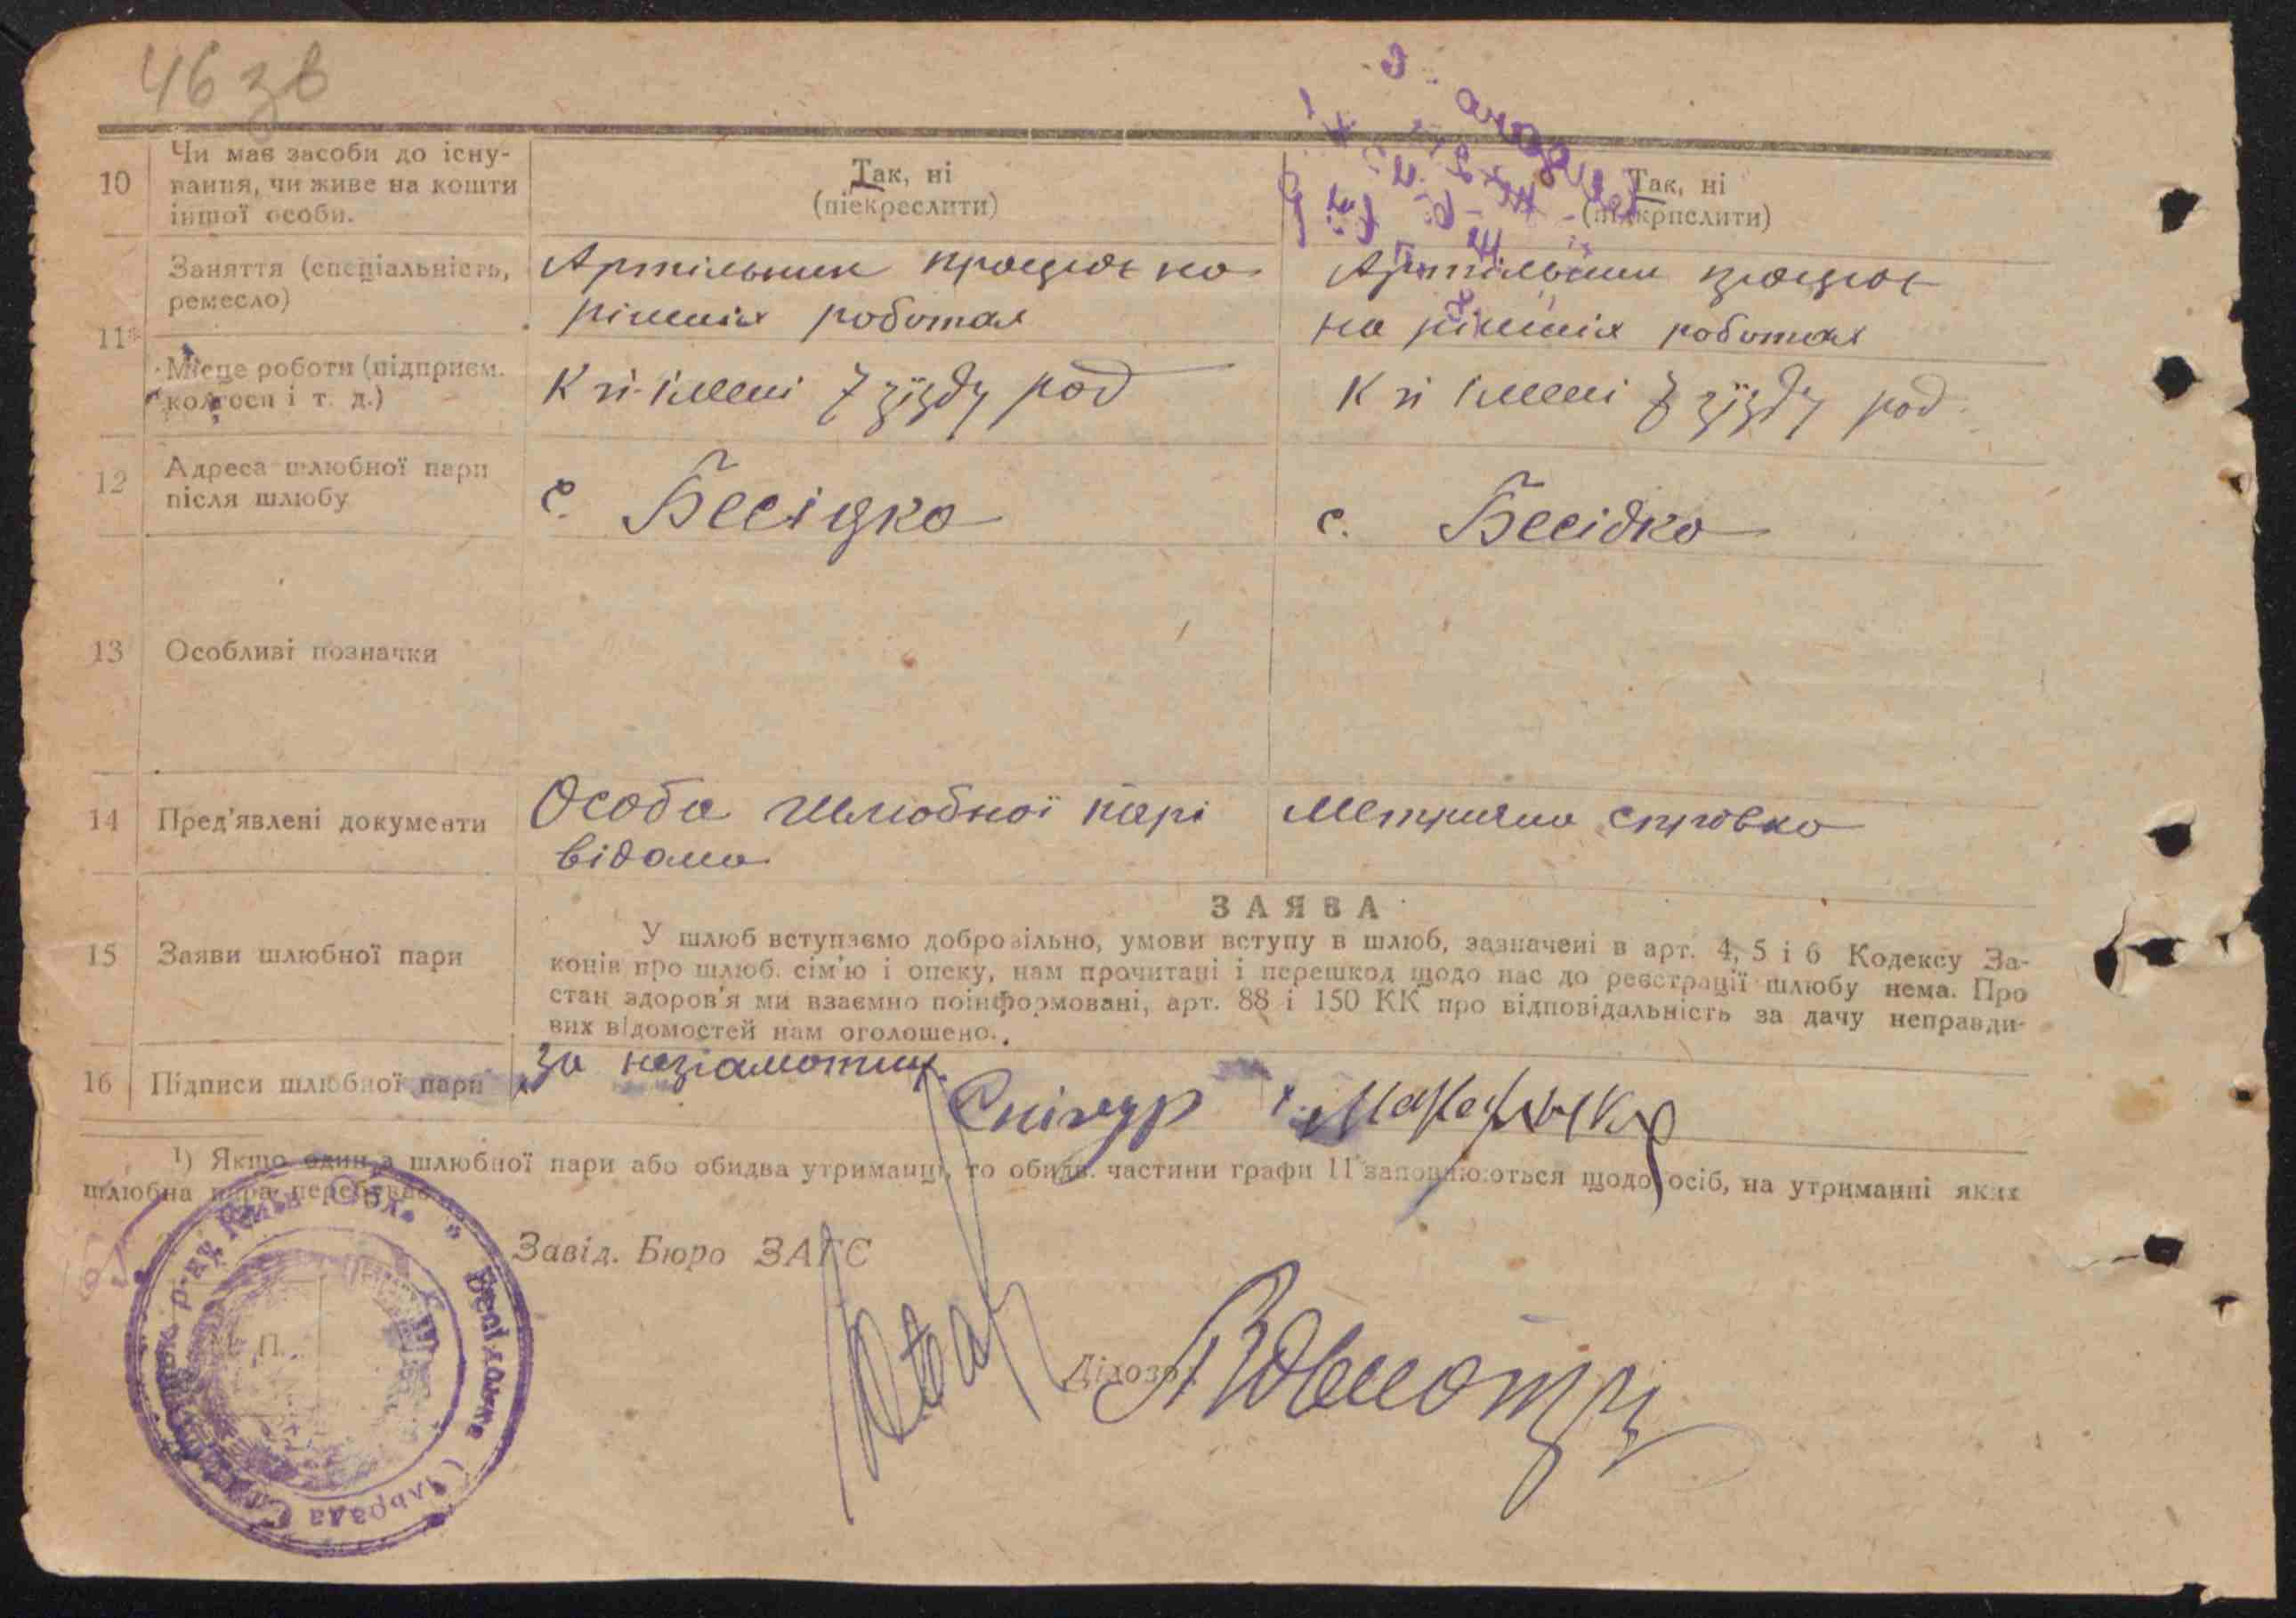 46 зв
10
Чи має засоби до існу-
вання, чи живе на кошти
іншої особи.
Так, ні
(піекреслити)
Так, ні
(підкрпслити)
11
Заняття (спеціальність,
ремесло)
Артільник працює на
рішніх роботах
Артільник працює
на рішніх роботах
Місце роботи (підприєм.
колгосп і т. д.)
імені 7 зїзду рад
імені 7 зїзду рад
12
Адреса шлюбної пари
після шлюбу
с. Бесідка
с. Бесідка
13
Особливі позначки
14
Пред'явлені документи
Особа шлюбної парі
відома
Метрична справка
15
Заяви шлюбної пари
ЗАЯВА
У шлюб вступаємо добровільно, умови вступу в шлюб, зазначені в арт. 4, 5 і 6 Кодексу За-
конів про шлюб. сім'ю і опеку, нам прочитані і перешкод щодо нас до реєстрації шлюбу нема. Про
стан здоров'я ми взаємно поінформовані, арт. 88 і 150 КК про відповідальність за дачу неправди-
вих відомостей нам оголошено.
16
Підписи шлюбної пари
за
Снігур
1) Якщо один з шлюбної пари або обидва утриманці, то обидв. частини графи 11 заповнюються щодо осіб, на утриманні яких
шлюбна пара перебуває
Завід. Бюро ЗАГС
Діловод
П.
Бесідське Сільрада
р-ну Київ. Обл.